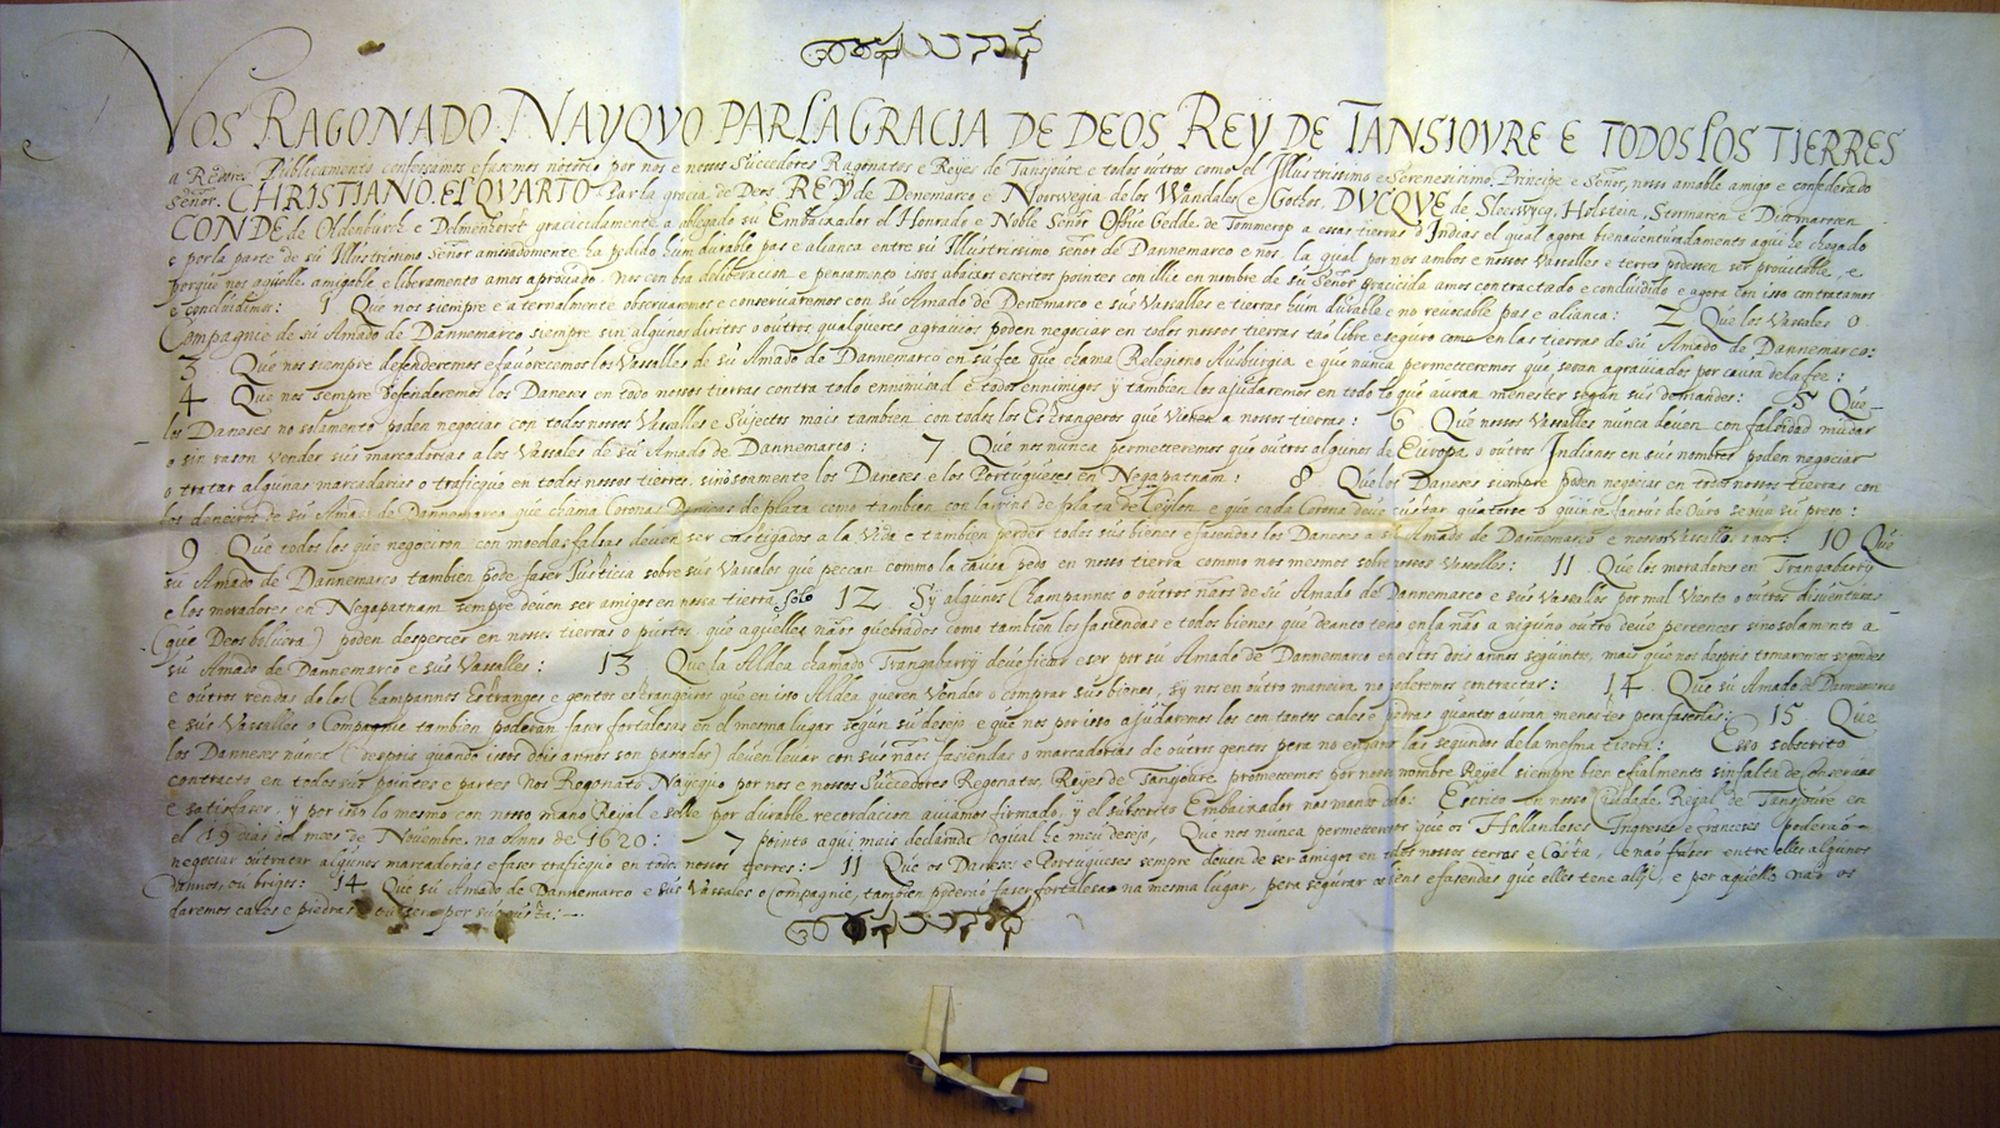 రఘునాథ
NOS RAGONADO NAŸQVO PAR LA GRACIA DE DEOS REŸ DE TANSIOVRE E TODOS LOS TIERRES
a Redore. Públicamento confessamos e fasemos notorio por nos e nossos Súccedores Ragonatos e Reÿes de Tansjoúre e todos outros como el Illústrissimo e Serenessimo Principe e Señor, nosso amable amigo e confederado
de Señor. CHRISTIANO. EL QVARTO Par la gracia de Deos REŸ de Denemarco e Noorwegia de los Wandales e Gothos, DVCQVE de Sleeswÿcq, Holstein, Stormaren e Ditmarssen
CONDE de Oldenbúrch e Delmenhorst gracicidamente a ablegado sú Embaixador el Honrado e Noble Señor Offúe Gedde de Tommerop a essas tierras d'Indias el qual agora bienaventuradamento aqúi he chegado
e por la parte de sú Illústrissimo Señor amisadomente ha pedido húm dúrable pas e alianca entre sú Illústrissimo señor de Dannemarco e nos, la qual por nos ambos e nossos Vassalles e terres podessen ser provitable, e
porqúe nos aqúelle amigable e liberamento amos aprovado. Nos con boa deliberacion e pensamento issos abaixos escritos pointes con illie en nombre de sú Señor gracicida amos contractado e conclúidido e agora con isso contratamos
e conclúidimos: 1 Qúe nos siempre e aternalmente observaremos e conserúaremos con sú Amado de Denemarco e sús Vassalles e tierras húm dúrable e no revocable pas e alianca: 2 Qúe los Vassales o
Compagnie de sú Amado de Dannemarco siempre sin algúnos diritos o outros qúalqúeres agravios poden negociar en todos nossos tierras tao libre e segúro como en las tierras de sú Amado de Dannemarco:
3 Qúe nos siempre defenderemos e faúorecemos los Vassalles de sú Amado de Dannemarco en sú fee qúe chama Relegiono Aúsbúrgia e qúe núnca permetteremos qúe seran agraviados por caúsa de la fee:
4 Qúe nos sempre defenderemos los Daneses en todo nossos tierras contra todo ennimisad e todos ennimigos ÿ tambien los ajúdaremos en todo lo qúe aúran menester según sús demandes: 5 Qúe
los Daneses no solamento poden negociar con todos nossos Vassalles e Sújectos mais tambien con todos los Estrangeros qúe vienen a nossos tierras: 6 Qúe nossos Vassalles núnca deven con falsidad múdar
o sin rason vender sús marcadorias a los Vassales de sú Amado de Dannemarco: 7 Qúe nos núnca permetteremos qúe outros algúnos de Eúropa o outros Indianos en sús nombres poden negociar
o tratar algúnas marcadarias o traficqúo en todos nossos tierres. sinosoamente los Daneses e los Portúgúeses en Negapatnam: 8 Qúe los Daneses siempre poden negocias en todos nossos tierras con
los deneiros de sú Amado de Dannemarco qúe chama Coronas Danicas de plata como tambien con larins de plata de Ceÿlon e qúe cada Corona deve cústar qúatorse o qúinse fanoús de Oúro según sú preso:
9 Qúe todos los qúe negociron con moedas falsas deven ser castigados a la Vida e tambien perder todos sús bienes e fasendas los Daneses a sú Amado de Dannemarco e nossos Vassallos a nos: 10 Qúe
sú Amado de Dannemarco tambien pode faser Jústicia sobre sús Vassalos qúe peccan commo la caúsa pedo en nosso tierra commo nos mesmos sobre nossos Vassalles: 11 Qúe los moradores en Trangabarrÿ
e los moradores en Negapatnam sempre deven ser amigos en nossa tierra solo 12 Sÿ algúnos Champannos o outros nãos de sú Amado de Dannemarco e sús Vassallos por mal viento o outros disventúras
(que Deos bolvera) poden despercer en nossos tierras o púrtos. qúe aqúelles nãos qúebrados como tambien los fasiendas e todos bienes qúe deanto teno en la não a nigúno outro deve pertencer sino solamento a
sú Amado de Dannemarco e sús Vassalles: 13 Qúe la Aldea chamado Trangabarrÿ deve ficar e ser por sú Amado de Dannemarco en estos dois annos segúintos, mais qúe nos despois tomaremos segondes
e outros rendas de los Champannos Estranges e gentos estrangeiros qúe en isso Aldea qúeren vender o comprar sús bienes, sÿ nos en outro maneira no poderemos contractar: 14 Qúe sú Amado de Dannemarco
e sús Vassalles o Compagnie tambien poderan faser fortalesas en el mesma lúgar según sú desejo e qúe nos por isso ajúdaremos los con tantos cales e piedras qúantos aúran menester pera faserlas: 15 Qúe
los Danneses núnca (despois qúando issos dois annos son passados) deven levar con sús nãos fasiendas o marcadorias de outros gentos pera no enganar las segundos de la mesma tierra: Esso sobscrito
contracto en todos sús pointes e partes Nos Regonato Naÿcqúo por nos e nossos Súccedores Regonatos, Reÿes de Tansjoúre promettemos por nosso nombre Reÿel siempre bien e fialmento sin falta de conservar
e satisfaser, ÿ por isso lo mesmo con nosso mano Rejal e sello por dúrable recordacion aviamos firmado, ÿ el súbscrito Embaixador nos mando dalo: Escrito en nosso Ciúdade Rejal de Tansjoúre en
el 19 dias del mees de Novembre no Anno de 1620: 7 pointo aqúi mais declarado eqúal he meú desejo, Qúe nos núnca permetteremos qúe os Hollandeses Ingreses e franceses poderaõ
negociar oútratar algúnos marcadorias e faser traficqúo en todos nossos terres: 11 Qúe os Daneses e Portúgúeses sempre deven de ser amigos en todos nossos terras e Costa, e naõ faser entre elles algúnos
dannos, oú brigos: 14 Qúe sú Amado de Dannemarco e sús Vassales o Compagnie, tambien poderaõ faser fortalesas na mesma lúgar, pera segúrar os biens e fasendas qúe elles tene allÿ, e per aqúello não os
daremos cales e piedras por sú cústa:
రఘునాథ